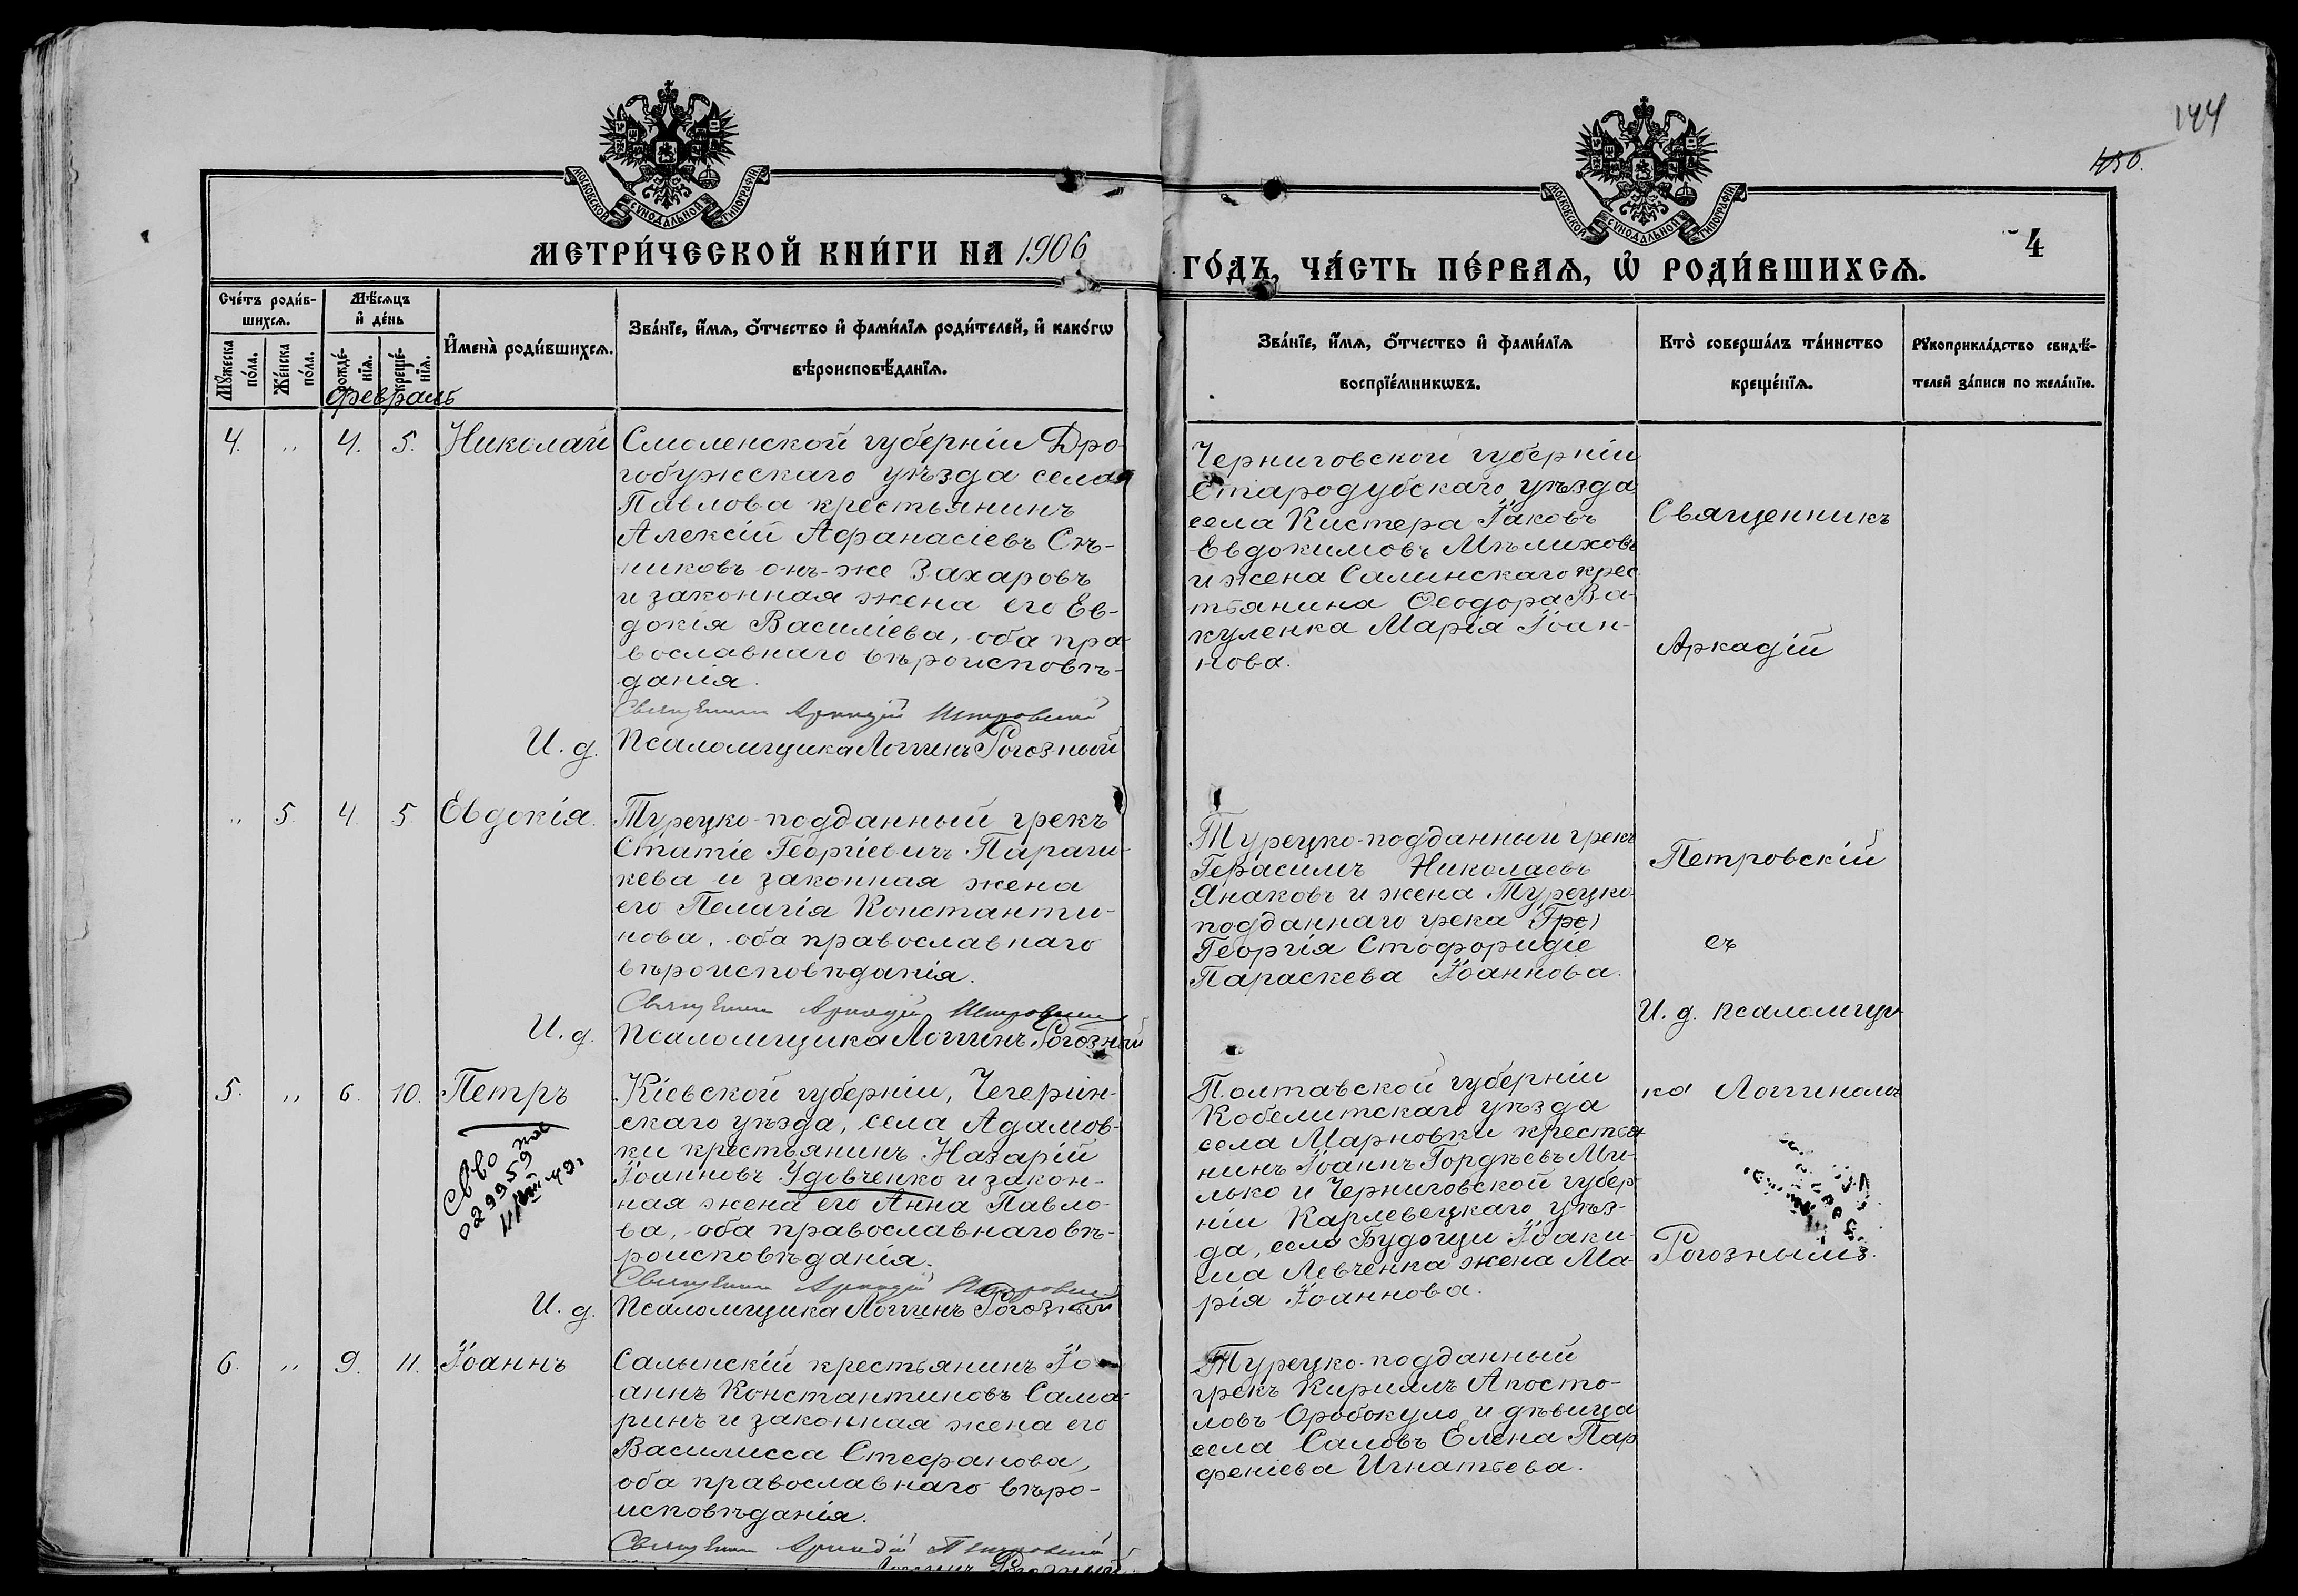 144
150.
МОСКОВСКОЙ СѴНОДАЛЬНОЙ ТИПОГРАФІИ
МОСКОВСКОЙ СѴНОДАЛЬНОЙ ТИПОГРАФІИ
МЕТРИ́ЧЕСКОЙ КНИ́ГИ НА 1906
ГО́ДЪ, ЧА́СТЬ ПЕ́РВАѦ, Ѡ҆ РОДИ́ВШИХСѦ.
4
Сче́тъ роди́в-
шихсѧ.
Мѣ́сѧцъ
и҆ де́нь
Мꙋ́жеска
по́ла.
Же́нска
по́ла.
рожде́-
нїѧ.
креще́-
нїѧ.
И҆мена̀ роди́вшихсѧ.
Зва́нїе, и҆́мѧ, ѻ҆́тчество и҆ фами́лїѧ роди́телей, и҆ како́гѡ
вѣроисповѣ́данїѧ.
Зва́нїе, и҆́мѧ, ѻ҆́тчество и҆ фами́лїѧ
воспрїе́мникѡвъ.
Кто̀ соверша́лъ та́инство
креще́нїѧ.
Рꙋкоприкла́дство свидѣ́-
телей за́писи по жела́нїю.
Февраль
4. " 4. 5. Николай
Смоленской губерніи Дро-
гобужскаго уѣзда села
Павлова крестьянинъ
Алексій Афанасіевъ Сѣ-
никовъ онъ-же Захаровъ
и законная жена его Ев-
докія Василіева, оба пра-
вославнаго вѣроисповѣ-
данія.
Священникъ Аркадій Петровскій
И. д. Псаломщика Логгинъ Рогозный
Черниговской губерніи
Стародубскаго уѣзда
села Кистера Іаковъ
Евдокимовъ Мѣлиховъ
и жена Салынскаго крес-
тьянина Ѳеодора Ва-
куленка Марія Іоан-
нова.
" 5. 4. 5. Евдокія.
Турецко-подданный грекъ
Статіе Георгіевичъ Параги-
кева и законная жена
его Пелагія Константи-
нова, оба православнаго
вѣроисповѣданія.
Священникъ Аркадій Петровскій
И. д. Псаломщика Логгинъ Рогозный
Турецко-подданный грекъ
Герасимъ Николаевъ
Янаковъ и жена Турецко-
подданнаго грека Гре)
Георгія Стофоридіе
Параскева Іоаннова.
5. " 6. 10. Петръ
Кіевской губерніи, Чегерин-
скаго уѣзда, села Адамов-
ки крестьянинъ Назарій
Іоанновъ Удовченко и закон-
ная жена его Анна Павло-
ва, оба православнаго вѣ-
роисповѣданія.
Священникъ Аркадій Петровскій
И. д. Псаломщика Логгинъ Рогозный
Полтавской губерніи
Кобелитскаго уѣзда
села Марновки крестья-
нинъ Іоаннъ Гордѣевъ Ми-
лько и Черниговской губер-
ніи Карлевецкаго уѣз-
да, села Будощи Іоаки-
ма Левченка жена Ма-
рія Іоаннова.
6. " 9. 11. Іоаннъ
Салынскій крестьянинъ Іо-
аннъ Константиновъ Сама-
ринъ и законная жена его
Василисса Стефанова,
оба православнаго вѣро-
исповѣданія.
Священникъ Аркадій Петровскій
Логгинъ Рогозный
Турецко-подданный
грекъ Кириллъ Апосто-
ловъ Оробокуло и дѣвица
села Саловъ Елена Пар-
феніева Игнатьева.
Священникъ
Аркадій
Петровскій
съ
И. д. псаломщи-
ка Логгиномъ
Рогознымъ.